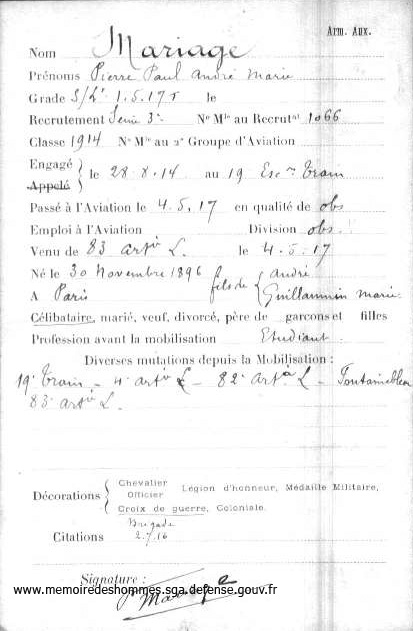 Arm. Aux.
Nom Mariage
Prénoms Pierre Paul André Marie
Grade S/Lt 1.5.17 T le
Recrutement Seine 3e No Mle au Recrutnt 1066
Classe 1914 No Mle au 2e Groupe d'Aviation
Engagé
Appelé
le 28.8.14 au 19 Escon Train
Passé à l'Aviation le 4.5.17 en qualité de obs
Emploi à l'Aviation Division obs.
Venu de 83 Artie L. le 4.5.17
Né le 30 Novembre 1896 fils de André
A Paris Guillaumin Marie
Célibataire, marié, veuf, divorcé, père de garçons et filles
Profession avant la mobilisation Etudiant
Diverses mutations depuis la Mobilisation :
19e Train - 4e Artie L - 82e Artie L - Fontainebleau
83 Artie L.
Décorations
Chevalier
Officier
Légion d'honneur, Médaille Militaire,
Croix de guerre, Coloniale.
Brigade
Citations 2.7.16
Signature :
Mariage
www.memoiredeshommes.sga.defense.gouv.fr